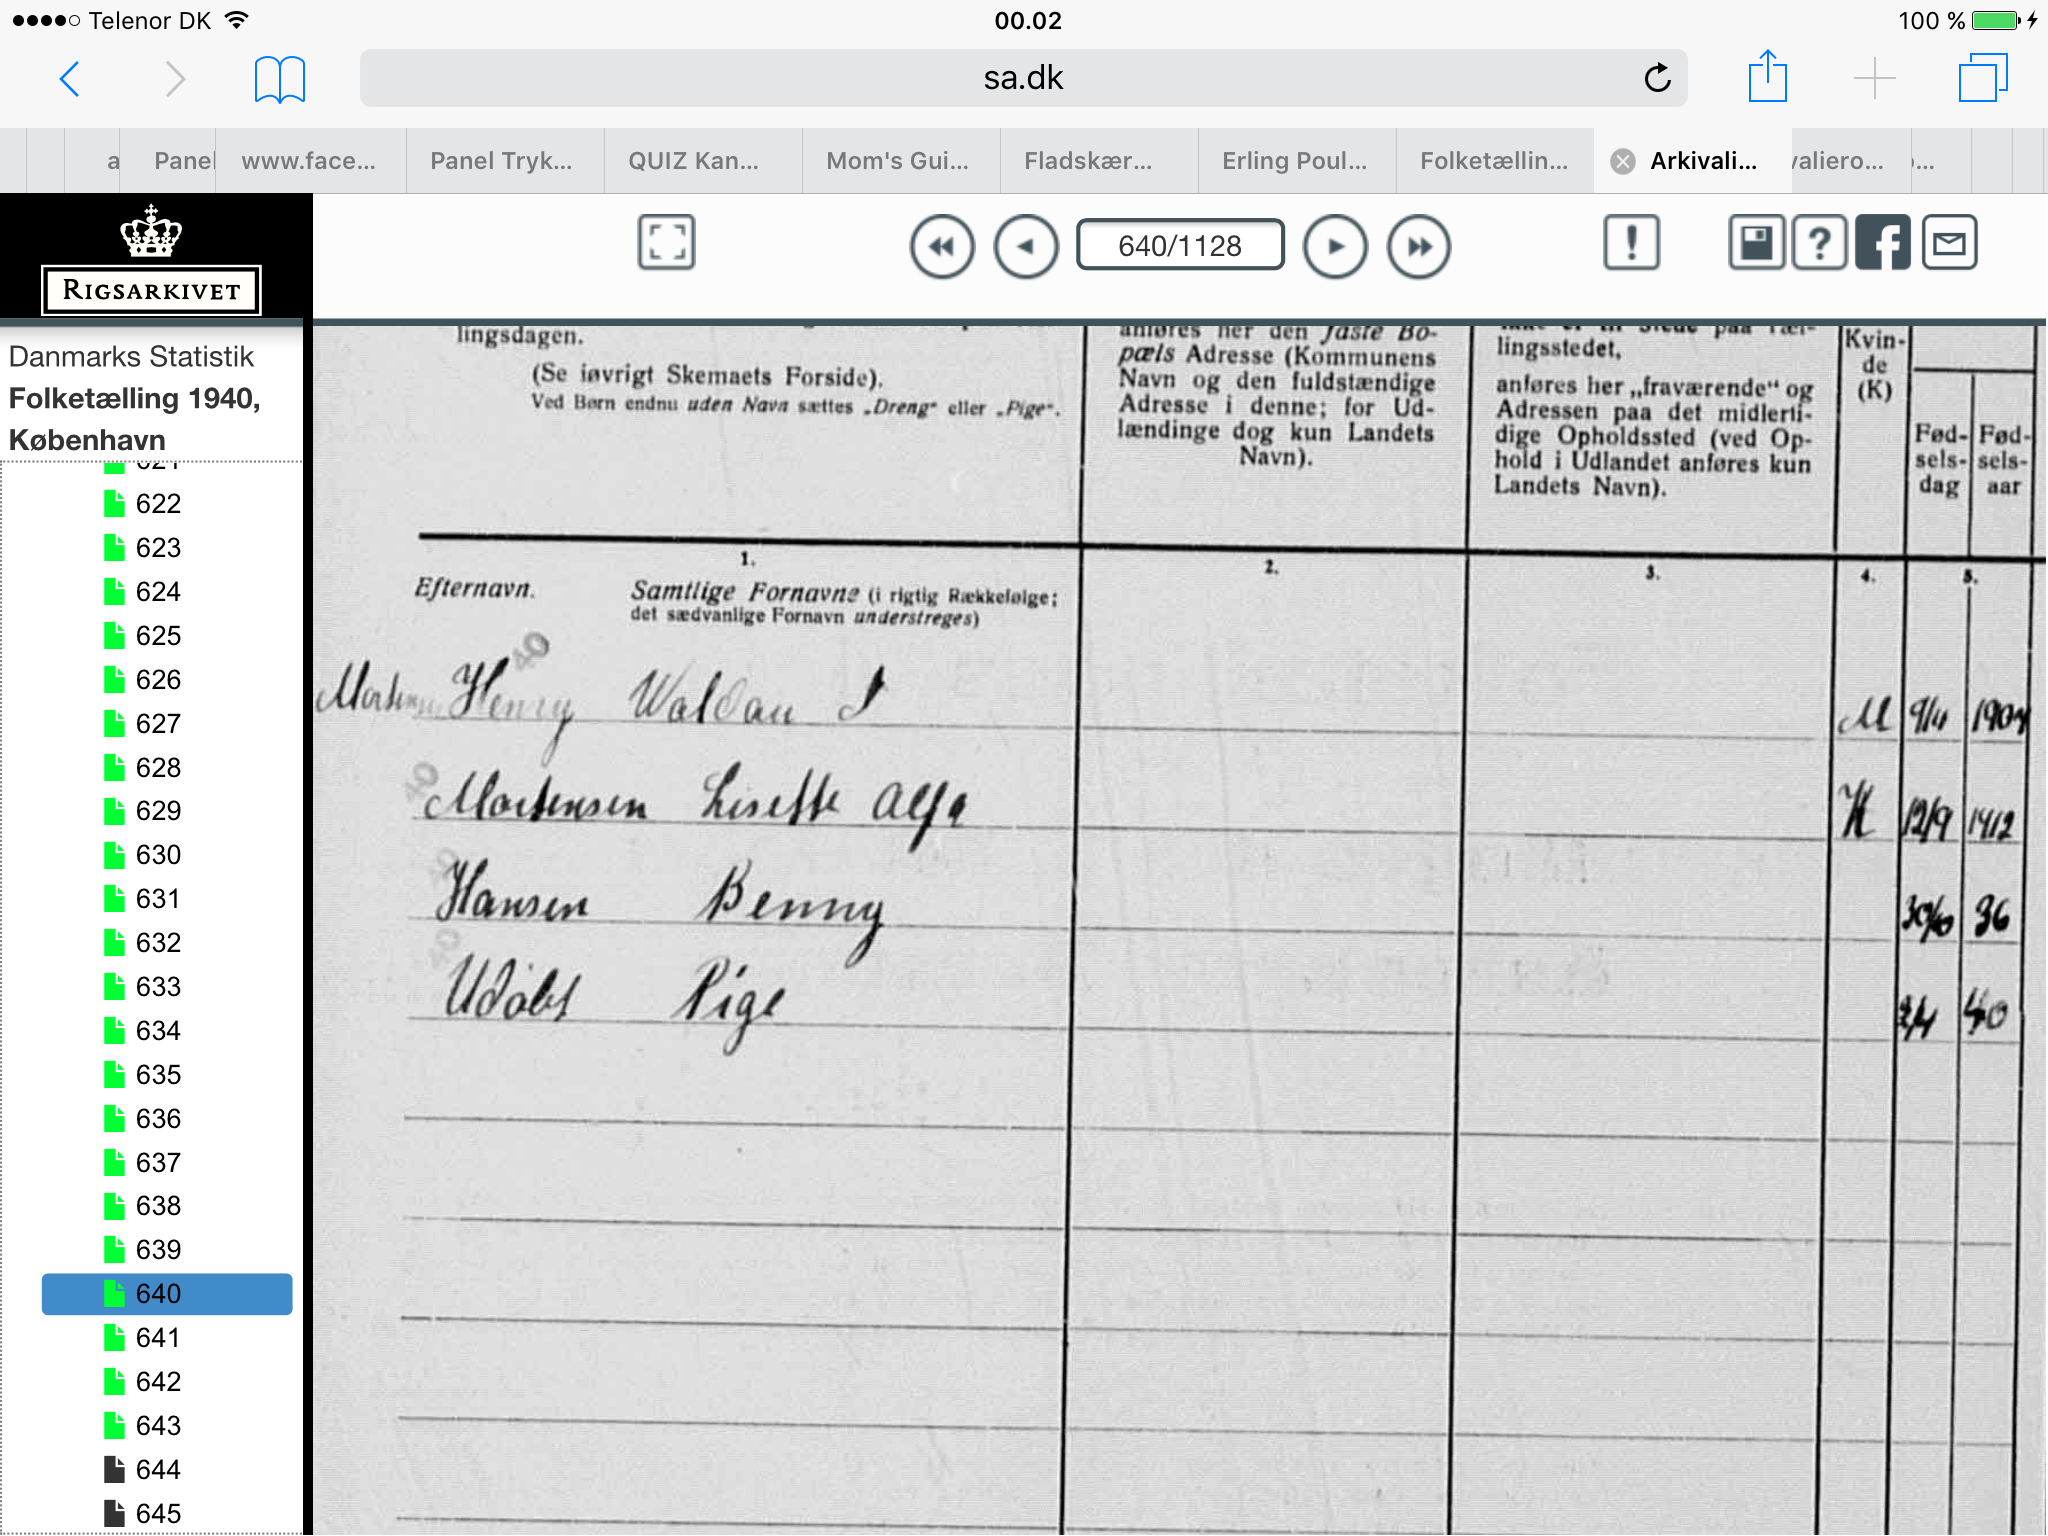 Telenor DK
00.02
100 %
sa.dk
a
Panel
www.face...
Panel Tryk...
QUIZ Kan...
Mom's Gui...
Fladskær...
Erling Poul...
Folketællin...
Arkivali...
valiero...
RIGSARKIVET
640/1128
Danmarks Statistik
Folketælling 1940,
København
622
623
624
625
626
627
628
629
630
631
632
633
634
635
636
637
638
639
640
641
642
643
644
645
lingsdagen.
(Se iøvrigt Skemaets Forside).
Ved Børn endnu uden Navn sættes „Dreng“ eller „Pige“.
anføres her den faste Bo-
pæls Adresse (Kommunens
Navn og den fuldstændige
Adresse i denne; for Ud-
lændinge dog kun Landets
Navn).
ikke er til Stede paa Tæl-
lingsstedet,
anføres her „fraværende“ og
Adressen paa det midlerti-
dige Opholdssted (ved Op-
hold i Udlandet anføres kun
Landets Navn).
Kvin-
de
(K)
Fød-
sels-
dag
Fød-
sels-
aar
1.
2.
3.
4.
5.
Efternavn.
Samtlige Fornavne (i rigtig Rækkefølge;
det sædvanlige Fornavn understreges)
40
Mortensen Henry Waldau M 9/4
40
Mortensen Lisette Alfa K 12/9 1912
Hansen Benny 36
Udøbt Pige 40